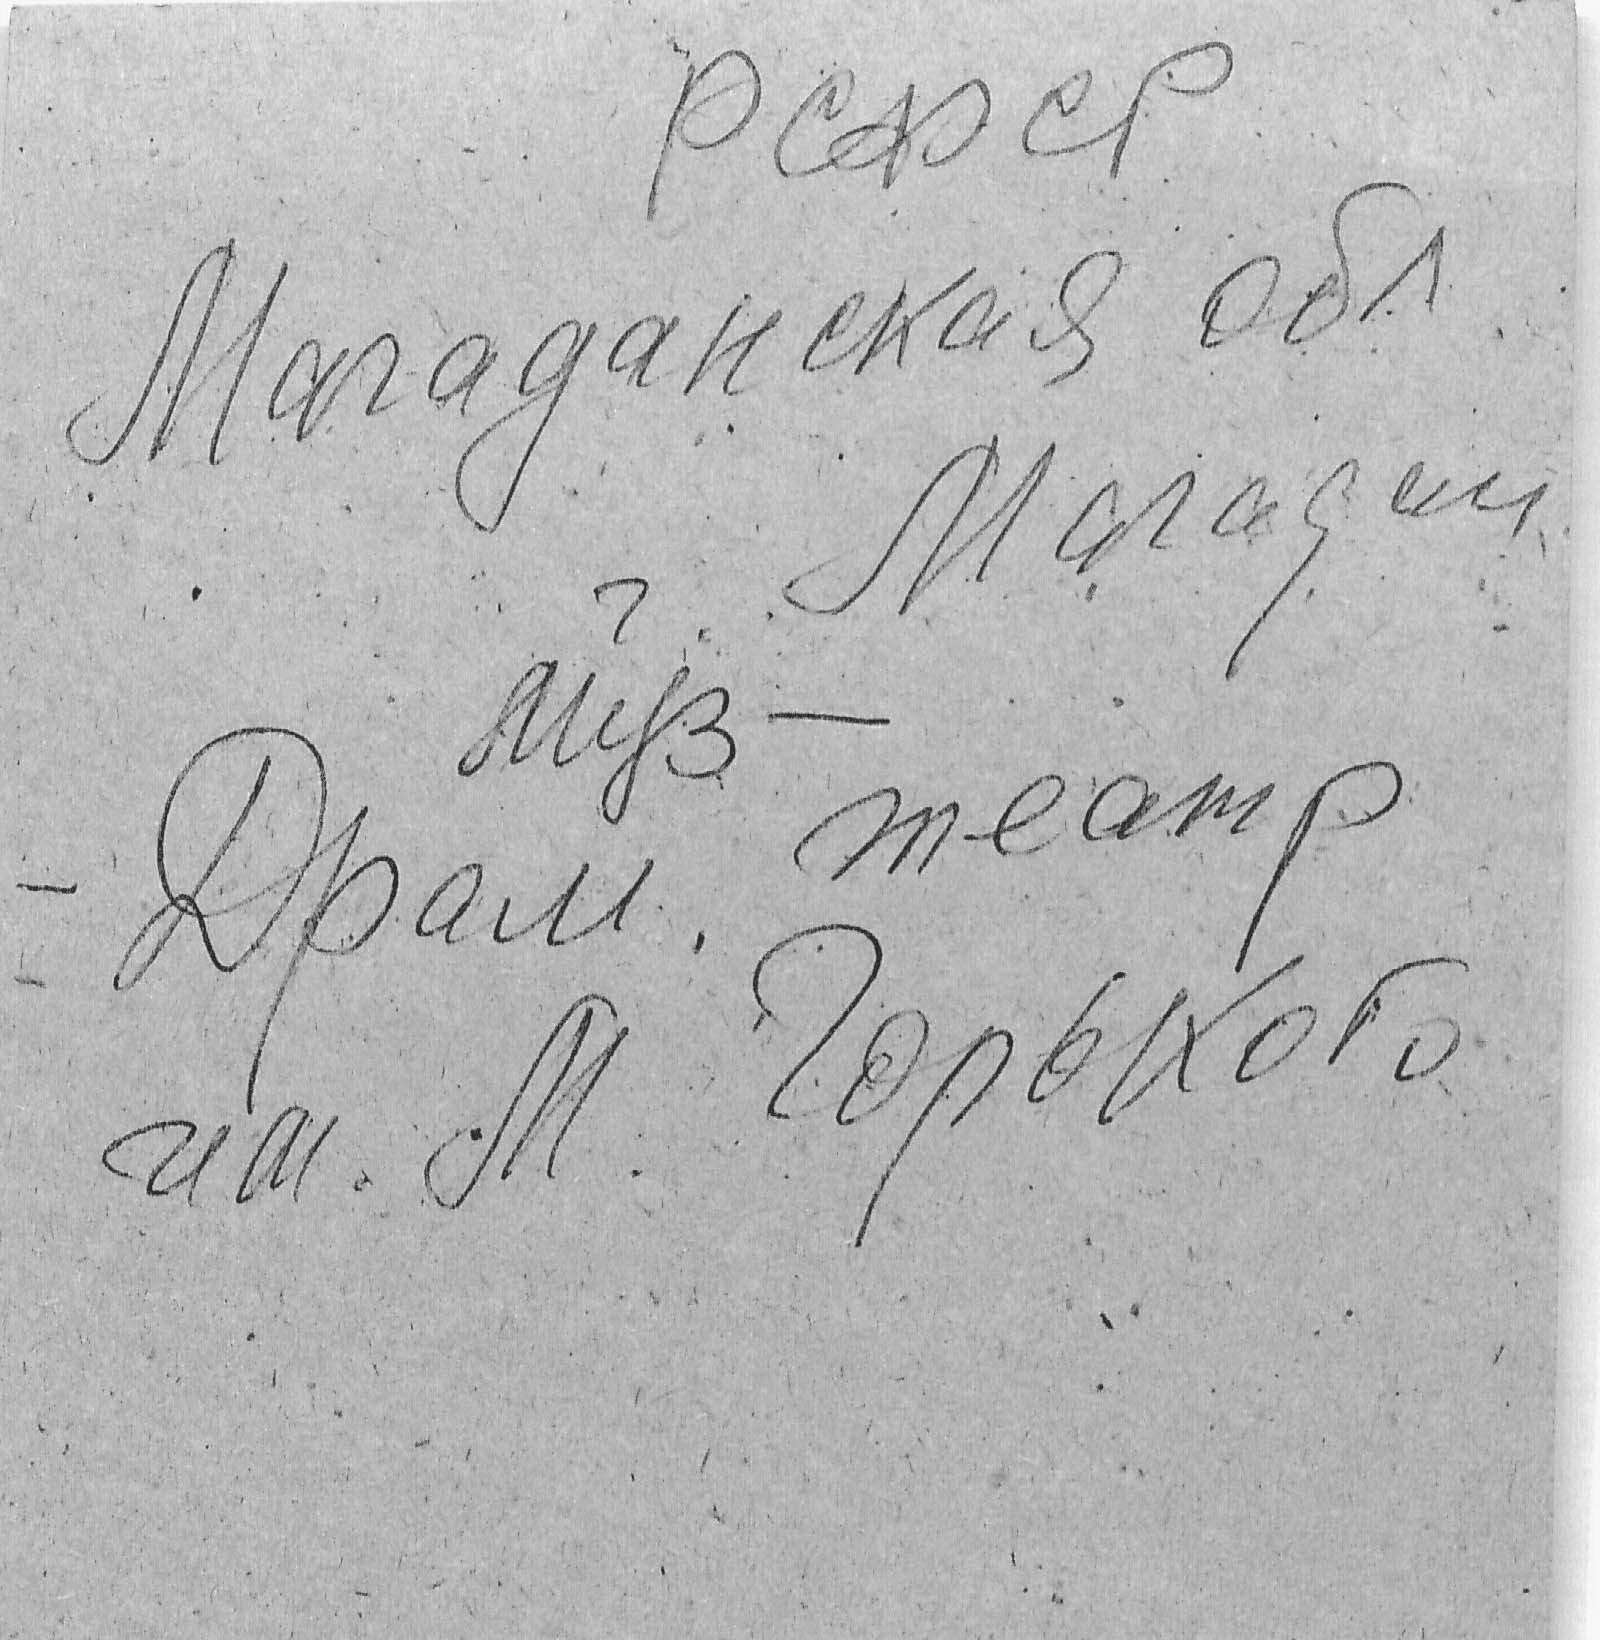 РСФСР
Магаданская обл
г. Магадан
муз —
Драм. театр
им. М. Горького